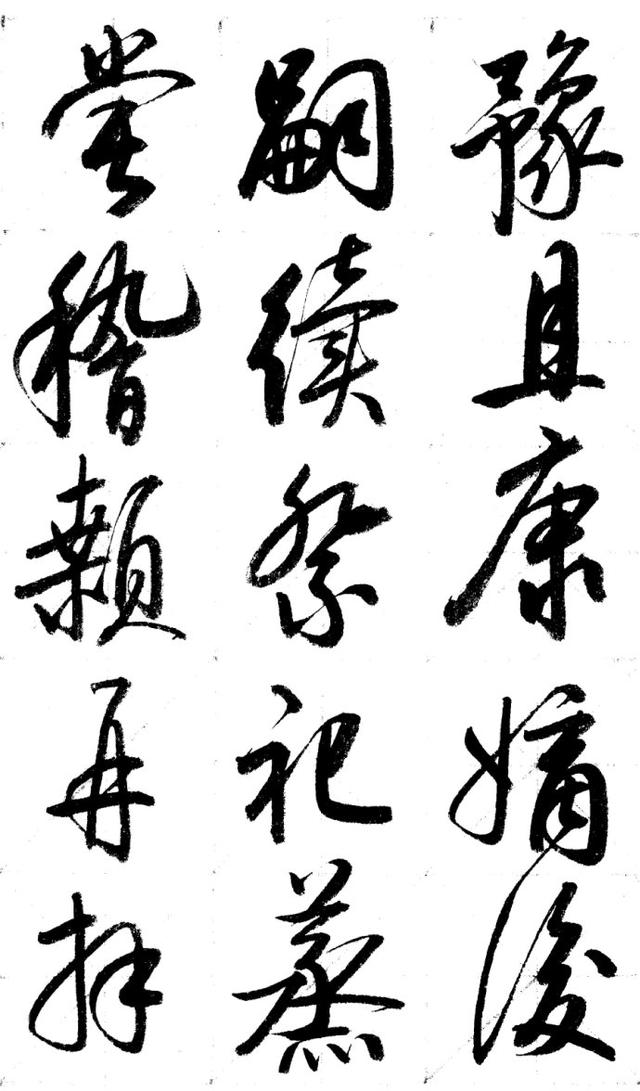 豫且康嫡後
嗣續祭祀蒸
嘗稽顙再拜